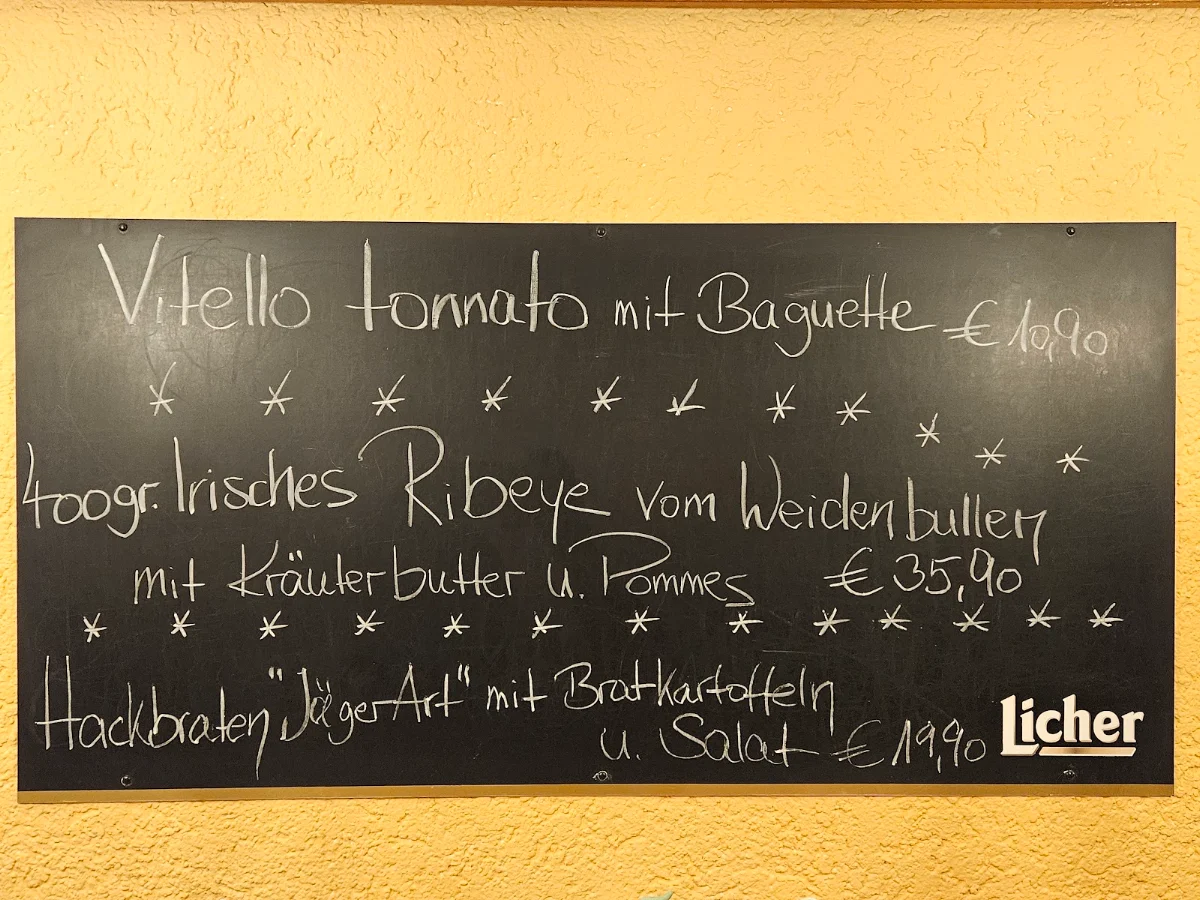 Vitello tonnato mit Baguette € 10,90
* * * * * * * * * * *
400gr. Irisches Ribeye vom Weidenbullen
mit Kräuterbutter u. Pommes € 35,90
* * * * * * * * * * * * *
Hackbraten "Jäger Art" mit Bratkartoffeln
u. Salat € 19,90
Licher